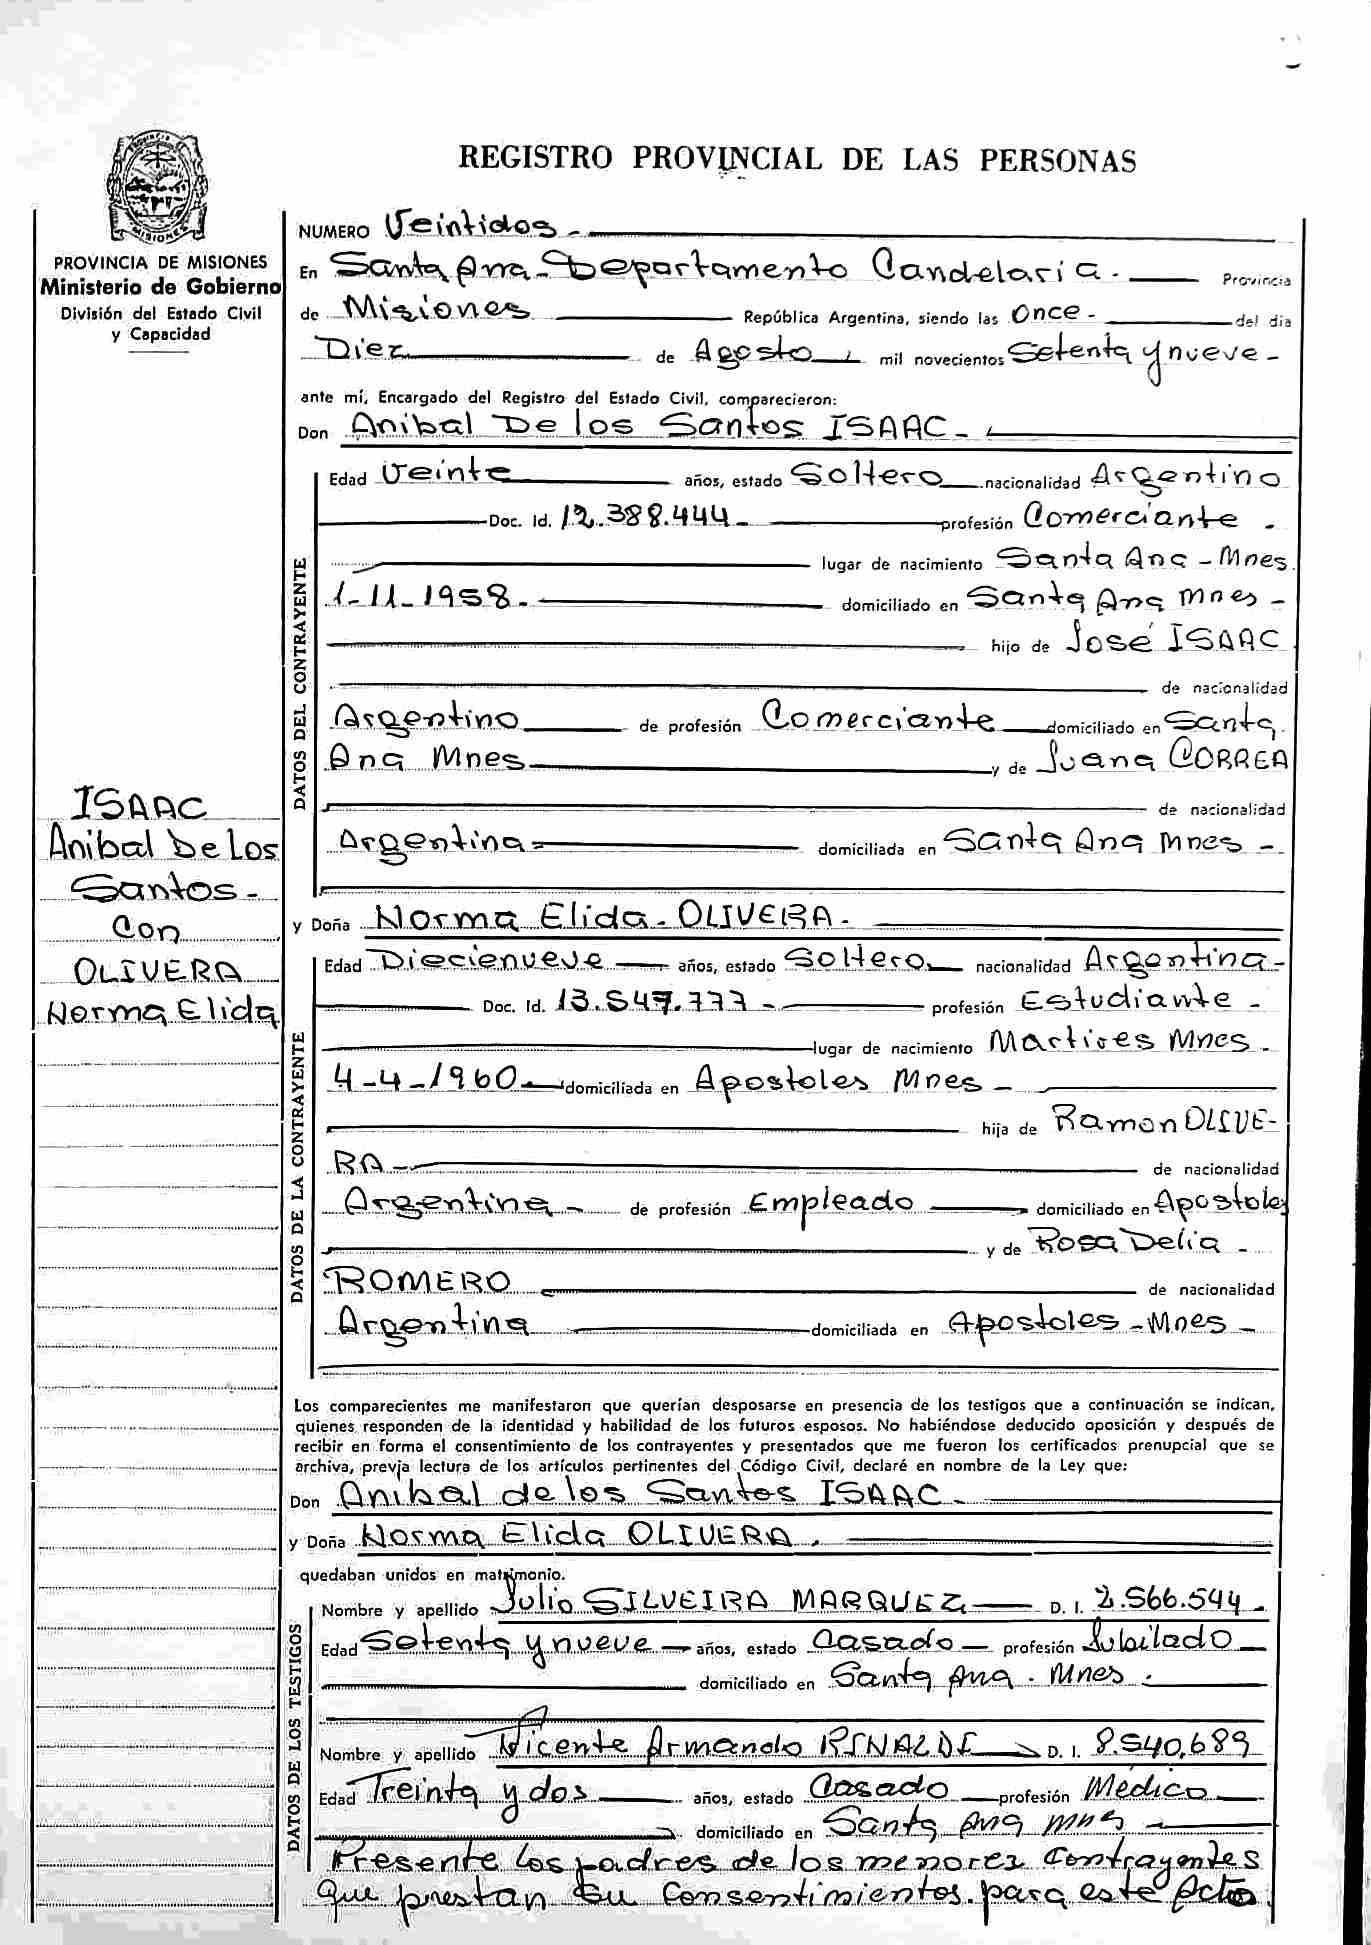 REGISTRO PROVINCIAL DE LAS PERSONAS
PROVINCIA DE MISIONES
Ministerio de Gobierno
División del Estado Civil
y Capacidad
ISAAC
Anibal De Los
Santos -
Con
OLIVERA
Norma Elida
NUMERO Veintidos -
En Santa Ana - Departamento Candelaria - Provincia
de Misiones República Argentina, siendo las Once - del dia
Diez de Agosto mil novecientos Setenta y nueve -
ante mí, Encargado del Registro del Estado Civil, comparecieron:
Don Anibal De los Santos ISAAC -
DATOS DEL CONTRAYENTE
Edad Veinte años, estado Soltero nacionalidad Argentino
Doc. Id. 12.388.444 - profesión Comerciante .
lugar de nacimiento Santa Ana - Mnes.
1-11-1958 - domiciliado en Santa Ana Mnes -
hijo de José ISAAC
de nacionalidad
Argentino de profesión Comerciante domiciliado en Santa
Ana Mnes y de Juana CORREA
de nacionalidad
Argentina domiciliada en Santa Ana Mnes -
y Doña Norma Elida - OLIVERA -
DATOS DE LA CONTRAYENTE
Edad Diecienueve años, estado Soltero nacionalidad Argentina -
Doc. Id. 13.547.777 - profesión Estudiante -
lugar de nacimiento Martires Mnes -
4-4-1960 domiciliada en Apostoles Mnes -
hija de Ramon OLIVE-
RA - de nacionalidad
Argentina - de profesión Empleado domiciliado en Apostoles
y de Rosa Delia -
ROMERO de nacionalidad
Argentina domiciliada en Apostoles - Mnes -
Los comparecientes me manifestaron que querían desposarse en presencia de los testigos que a continuación se indican,
quienes responden de la identidad y habilidad de los futuros esposos. No habiéndose deducido oposición y después de
recibir en forma el consentimiento de los contrayentes y presentados que me fueron los certificados prenupcial que se
archiva, previa lectura de los artículos pertinentes del Código Civil, declaré en nombre de la Ley que:
Don Anibal de los Santos ISAAC -
y Doña Norma Elida OLIVERA .
quedaban unidos en matrimonio.
DATOS DE LOS TESTIGOS
Nombre y apellido Julio SILVEIRA MARQUEZ D. I. 2.566.544 -
Edad Setenta y nueve años, estado Casado - profesión Jubilado
domiciliado en Santa Ana - Mnes -
Nombre y apellido Vicente Armando RINALDI D. I. 8.540.689
Edad Treinta y dos años, estado Casado profesión Médico
domiciliado en Santa Ana Mnes
Presente los padres de los menorez Contrayentes
que prestan su Consentimientos para este Acto